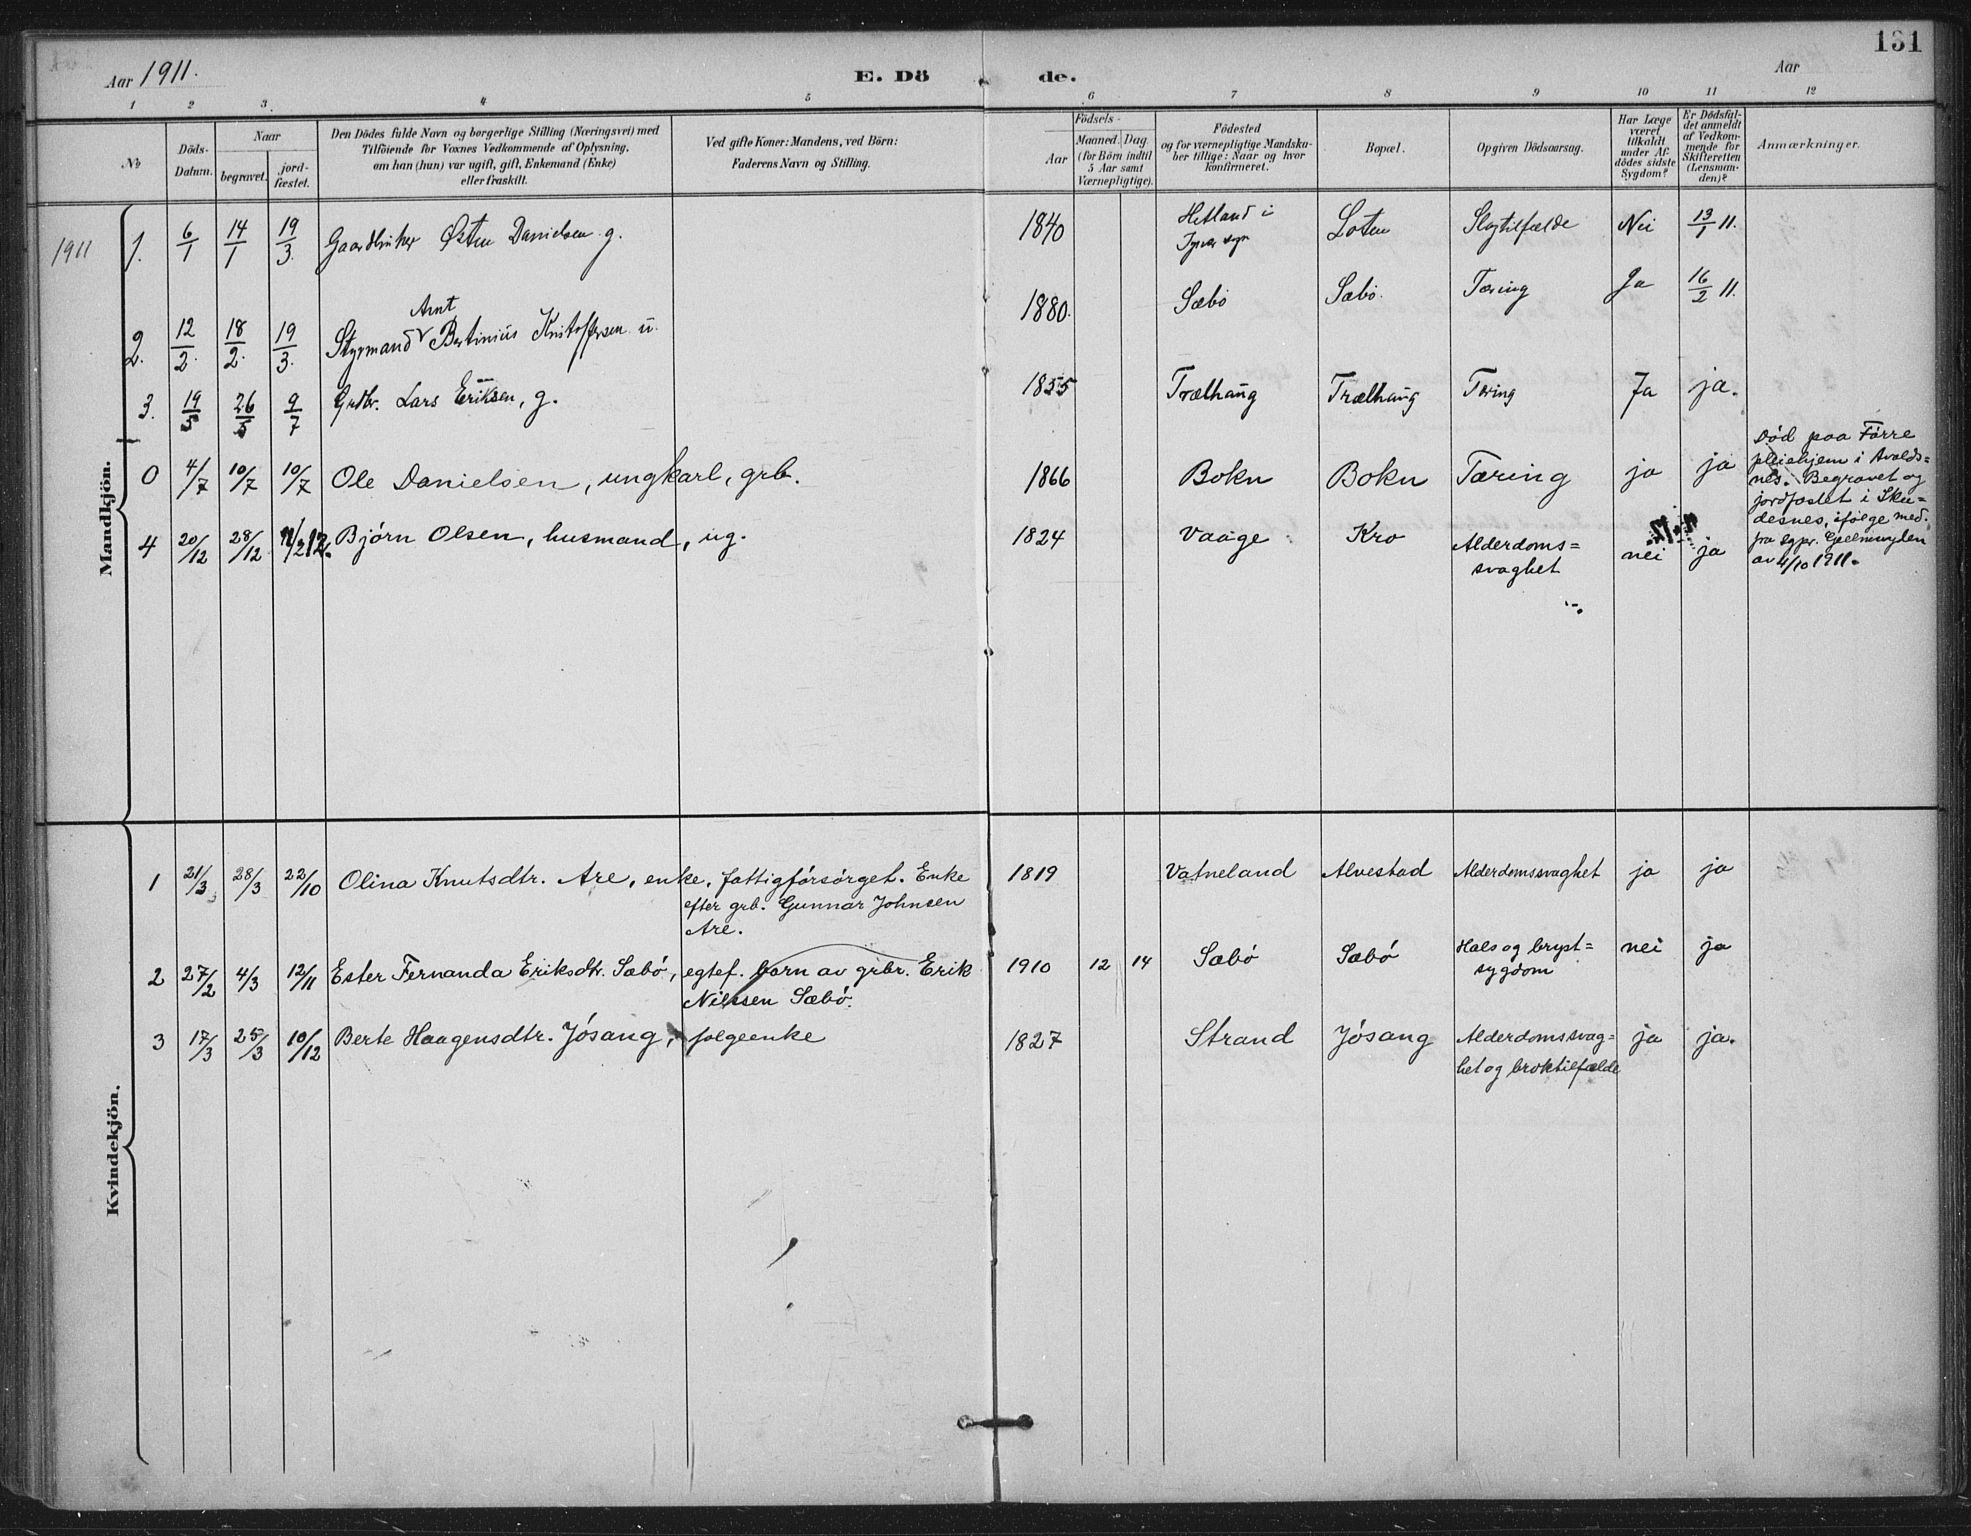 131
Aar 1911. E. Dö de. Aar
1 2 3. 4 5 6 7 8 9 10 11 12
No
Döds-
Datum.
Naar
begravet.
jord-
fæstet.
Den Dödes fulde Navn og borgerlige Stilling (Næringsvei) med
Tilföiende for Voxnes Vedkommende af Oplysning,
om han (hun) var ugift, gift, Enkemand (Enke)
eller fraskilt.
Ved gifte Koner: Mandens, ved Börn:
Faderens Navn og Stilling.
Födsels-
Aar
Maaned. Dag
(for Börn indtil
5 Aar samt
Værnepligtige).
Födested
og for værnepligtige Mandska-
ber tillige: Naar og hvor
konfirmeret.
Bopæl.
Opgiven Dödsaarsag.
Har Læge
været
tilkaldt
under Af-
dödes sidste
Sygdom?
Er Dödsfal-
det anmeldt
af Vedkom-
mende for
Skifteretten
(Lensman-
den)?
Anmærkninger.
Mandkjön.
1911 1. 6/1 14/1 19/3. Gaardbruker Østen Danielsen g. 1840 Hetland i Loten Slagtilfælde Nei 13/1 11.
Tysvær sogn
Arnt
2. 12/2. 18/2. 19/3. Styrmand v Bertinius Kristoffersen u. 1880. Sæbø Sæbø. Tæring Ja 16/2 11.
3. 19/5 26/5 9/7 Grdbr. Lars Eriksen, g. 1855 Trælhaug Trælhaug Tæring Ja ja.
0 4/7 10/7 10/7 Ole Danielsen, ungkarl, grb. 1866 Bokn Bokn Tæring ja ja
Død paa Førre
pleiehjem i Avalds=
nes. Begravet og
jordfæstet i Sku=
desnes, ifølge med.
fra sgpr.
av 4/10 1911.
4 20/12 28/12 11/2 12. Bjørn Olsen, husmand, ug. 1824 Vaage Kro Alderdoms=
svaghet nei ja
Kvindekjön.
1 21/3 28/3 22/10 Olina Knutsdtr. Are, enke, fattigforsørget. Enke 1819 Vatneland Alvestad Alderdomssvaghet ja ja
efter grb. Gunnar Johnsen
Are.
2 27/2 4/3 12/11 Ester Fernanda Eriksdtr. Sæbø, egtef. barn av grbr. Erik 1910 12 14 Sæbø Sæbø Hals og bryst= nei ja
Nilssen Sæbø. sygdom
3 17/3 25/3 10/12 Berte Haagensdtr. Jøsang, folgeenke 1827 Strand Jøsang Alderdomssvag= ja ja.
het og broktilfælde